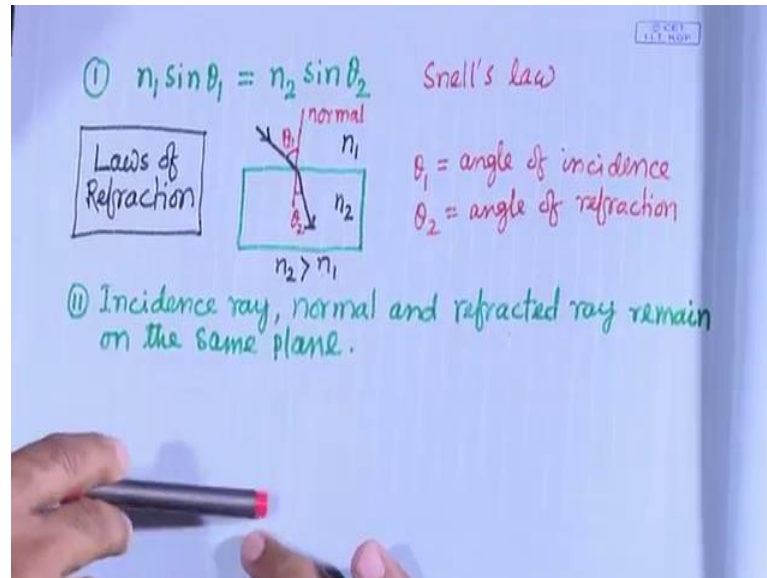 © CET
I.I.T. KGP
① n₁ sin θ₁ = n₂ sin θ₂ Snell's law
Laws of
Refraction
normal
θ₁
n₁
θ₂
n₂
n₂ > n₁
θ₁ = angle of incidence
θ₂ = angle of refraction
⑪ Incidence ray, normal and refracted ray remain
on the same plane.